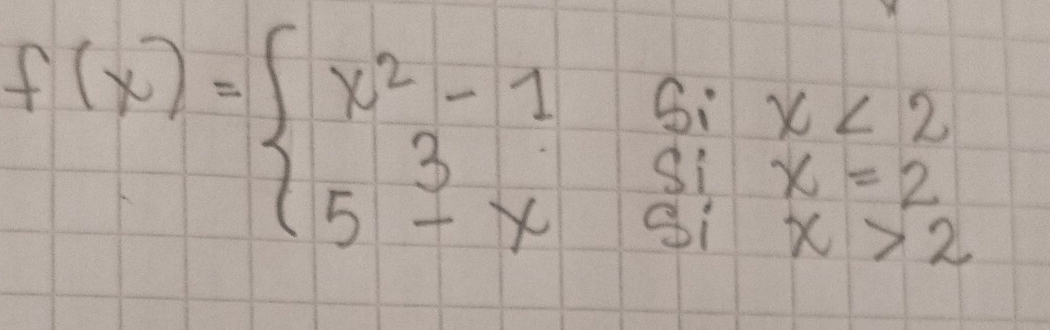 f(x) = { x² - 1 Si x < 2
3 Si x = 2
5 - x Si x > 2